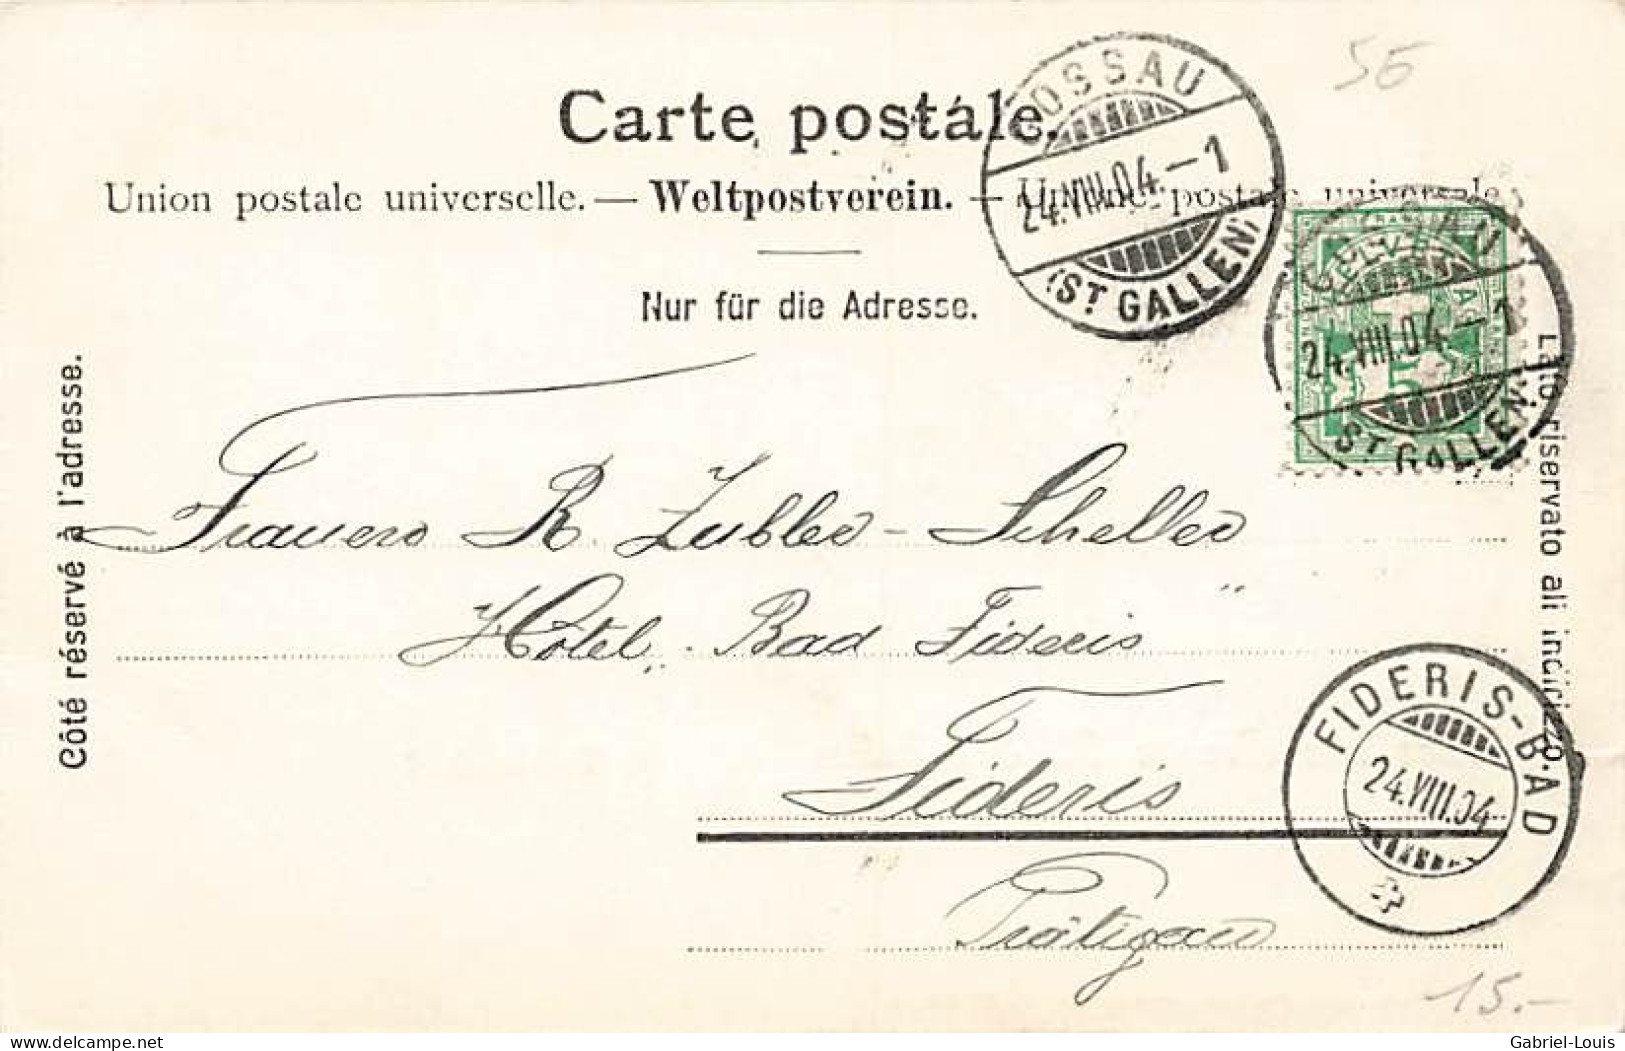 56
Carte postale.
Union postale universelle. — Weltpostverein. — Unione postale universale.
Nur für die Adresse.
Côté réservé à l'adresse.
Lato riservato all indirizzo.
GOSSAU
24.VIII.04.–1
(ST. GALLEN)
GOSSAU
24.VIII.04–1
(ST. GALLEN)
HELVETIA
5
R. Zubler - Scheller
Hôtel „Bad Fideris"
Fideris
Prätigau
FIDERIS-BAD
24.VIII.04
15.-
delcampe.net
Gabriel-Louis